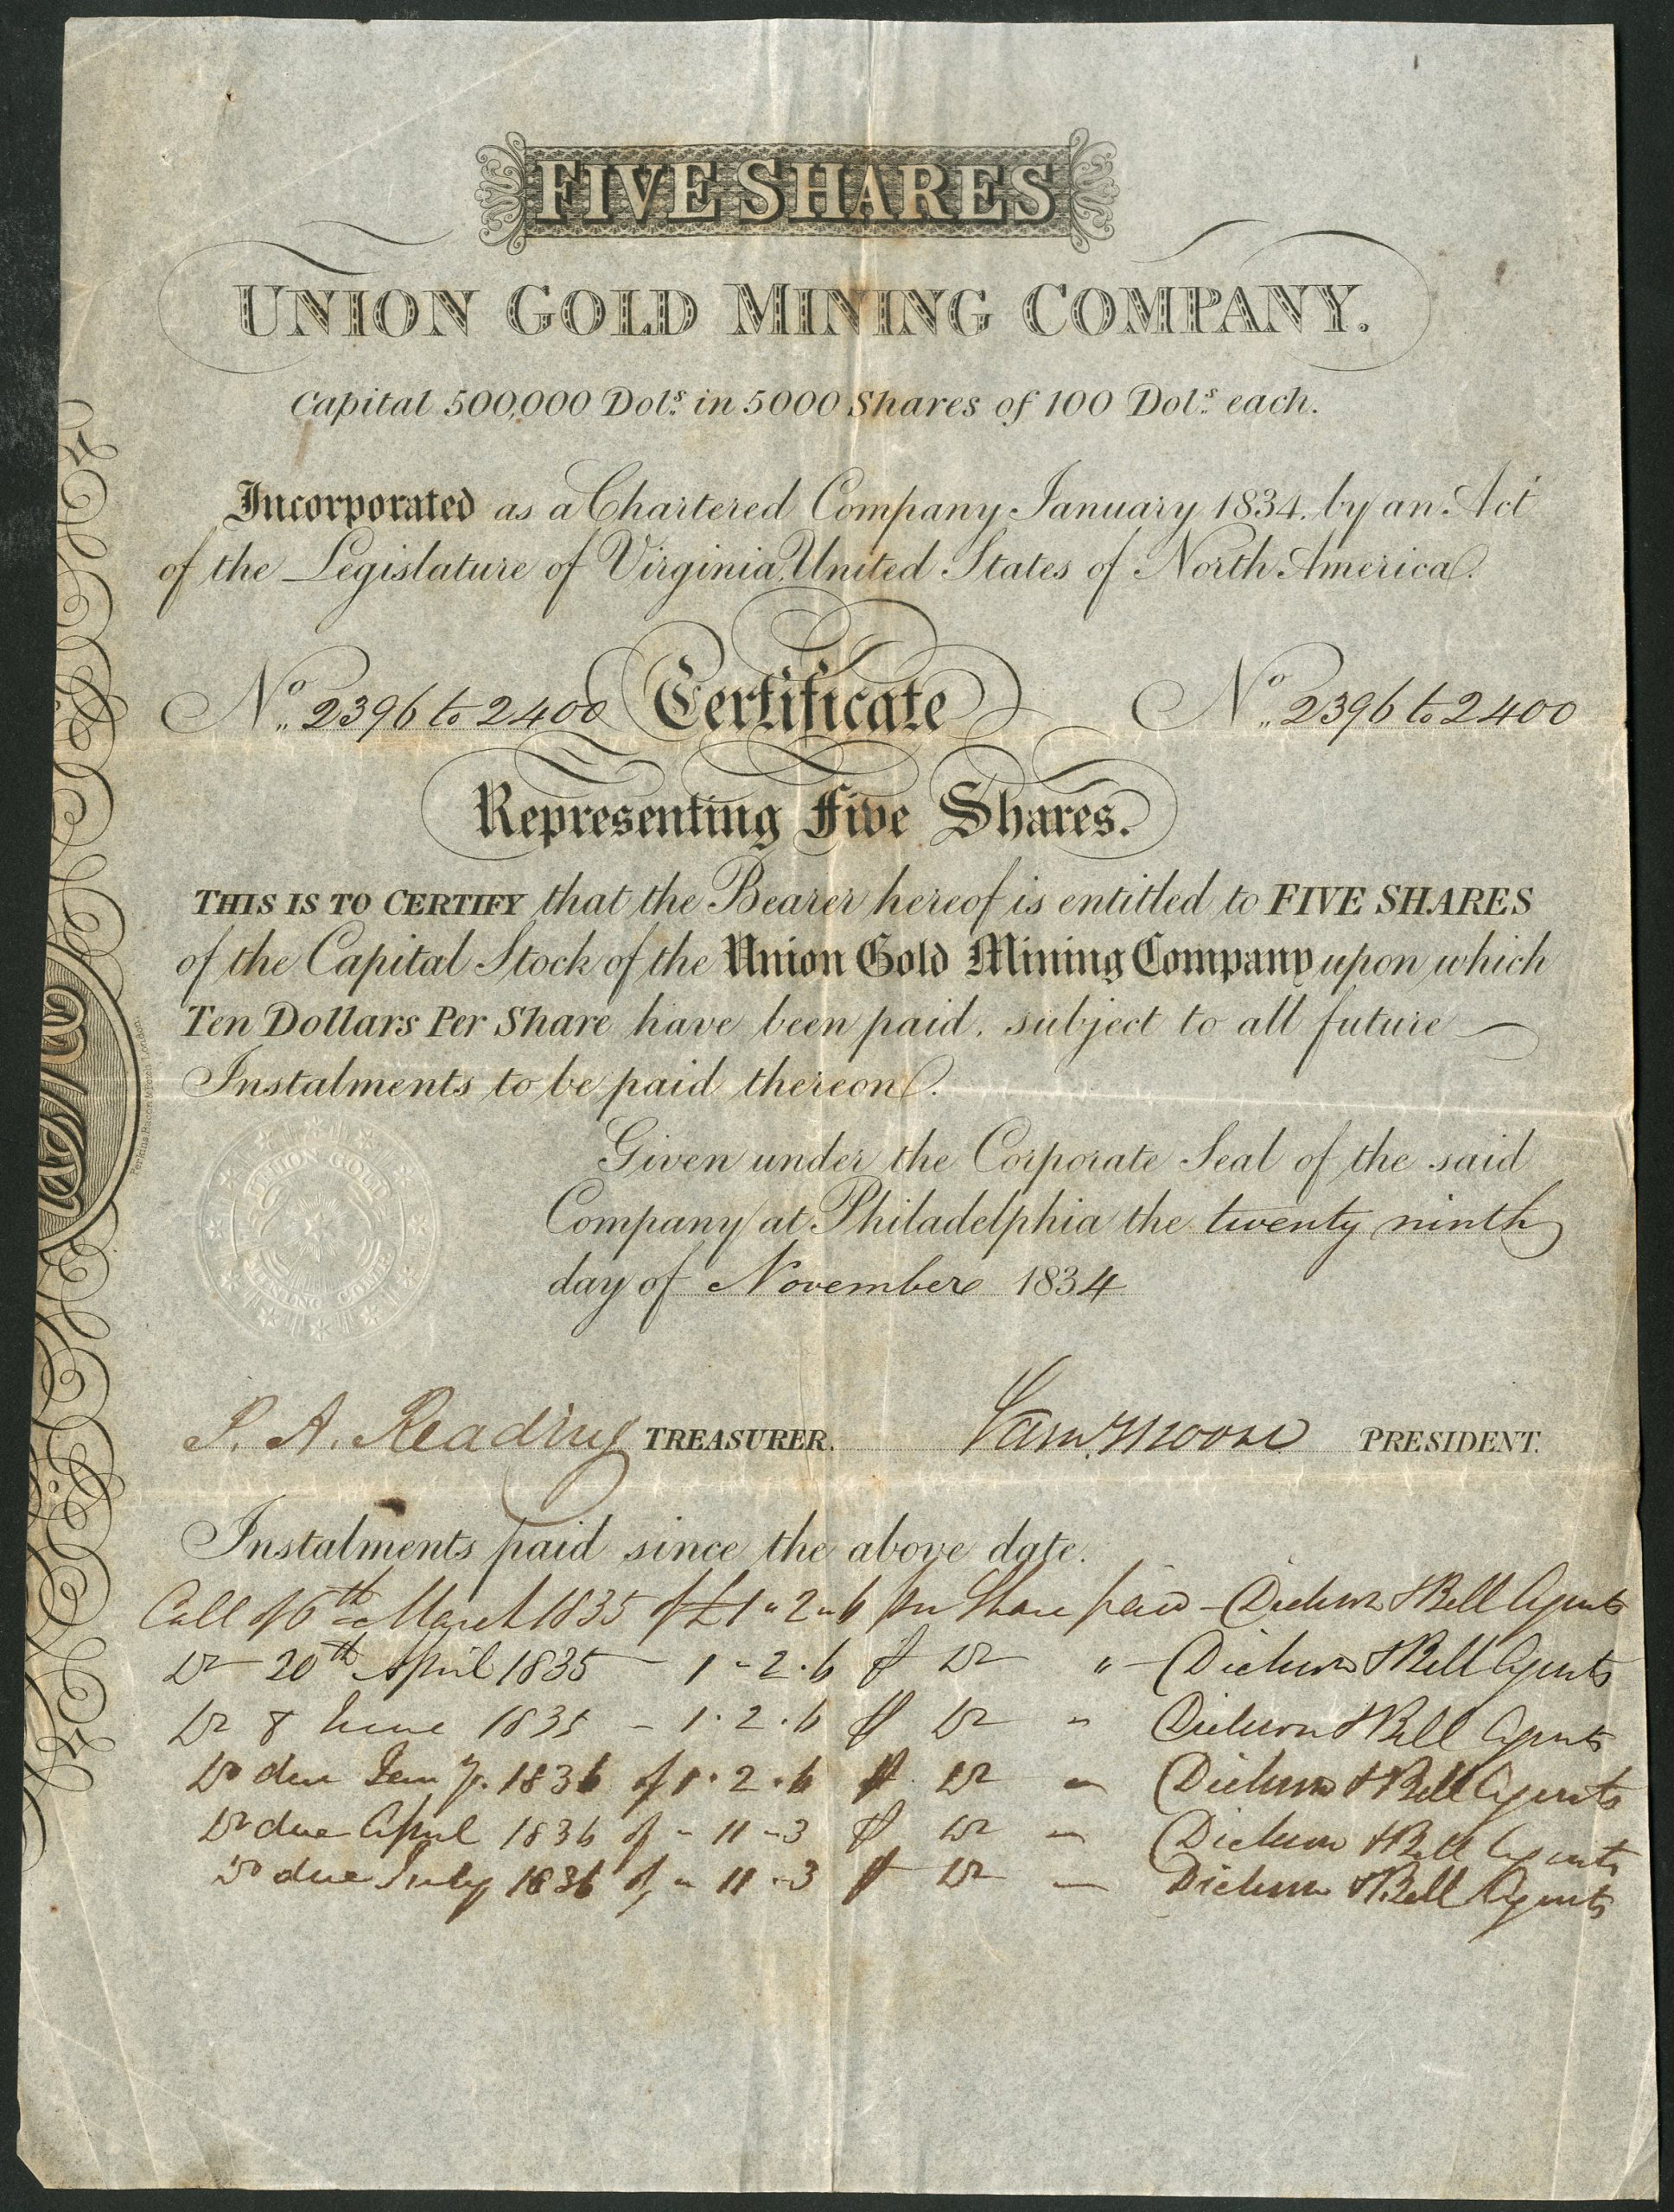 FIVE SHARES
UNION GOLD MINING COMPANY.
Capital 500,000 Dolˢ. in 5000 Shares of 100 Dolˢ. each.
Incorporated as a Chartered Company January 1834. by an Act
of the Legislature of Virginia, United States of North America.
Nº. 2396 to 2400 Certificate Nº. 2396 to 2400
Representing Five Shares.
THIS IS TO CERTIFY that the Bearer hereof is entitled to FIVE SHARES
of the Capital Stock of the Union Gold Mining Company upon which
Ten Dollars Per Share have been paid, subject to all future
Instalments to be paid thereon.
Perkins Bacon London.
UNION GOLD
MINING COMP
Given under the Corporate Seal of the said
Company at Philadelphia the twenty ninth
day of November 1834
P. A. Reading TREASURER. Sam. Moore PRESIDENT.
Instalments paid since the above date.
Call of 6th March 1835 of £1"2"6 per Share paid - Dickson & Bell Agents
Do 20th April 1835 - 1-2.6 Do " - Dickson & Bell Agents
Do 8 June 1835 - 1.2.6 Do " Dickson & Bell Agents
Do due Jany. 1836 of 1.2.6 Do " Dickson & Bell Agents
Do due April 1836 of - 11-3 Do " Dickson & Bell Agents
Do due July 1836 of - 11-3 Do - Dickson & Bell Agents